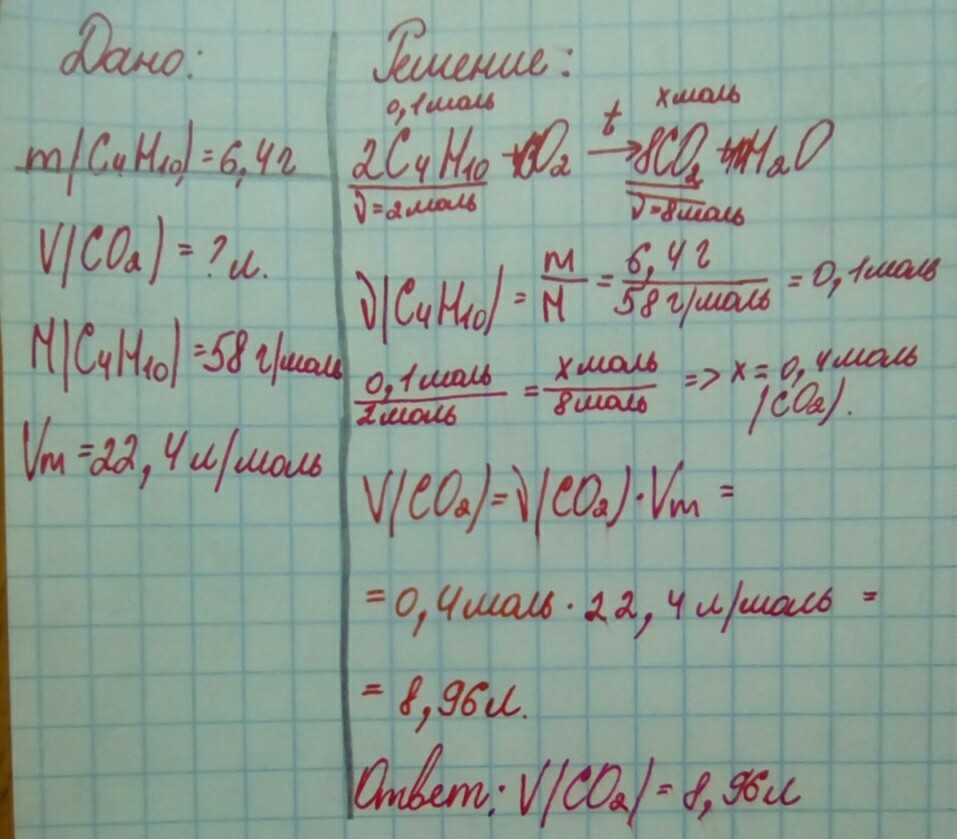 Дано:
m(C4H10)=6,4г
V(CO2)=?л.
M(C4H10)=58г/моль
Vm=22,4л/моль
Решение:
0,1моль xмоль
2C4H10 + O2 t → 8CO2 + H2O
ν=2моль ν=8моль
ν(C4H10) = m/M = 6,4г/58г/моль = 0,1моль
0,1моль/2моль = xмоль/8моль => x=0,4моль
(CO2).
V(CO2)=ν(CO2)·Vm =
=0,4моль·22,4л/моль =
= 8,96л.
Ответ: V(CO2)=8,96л